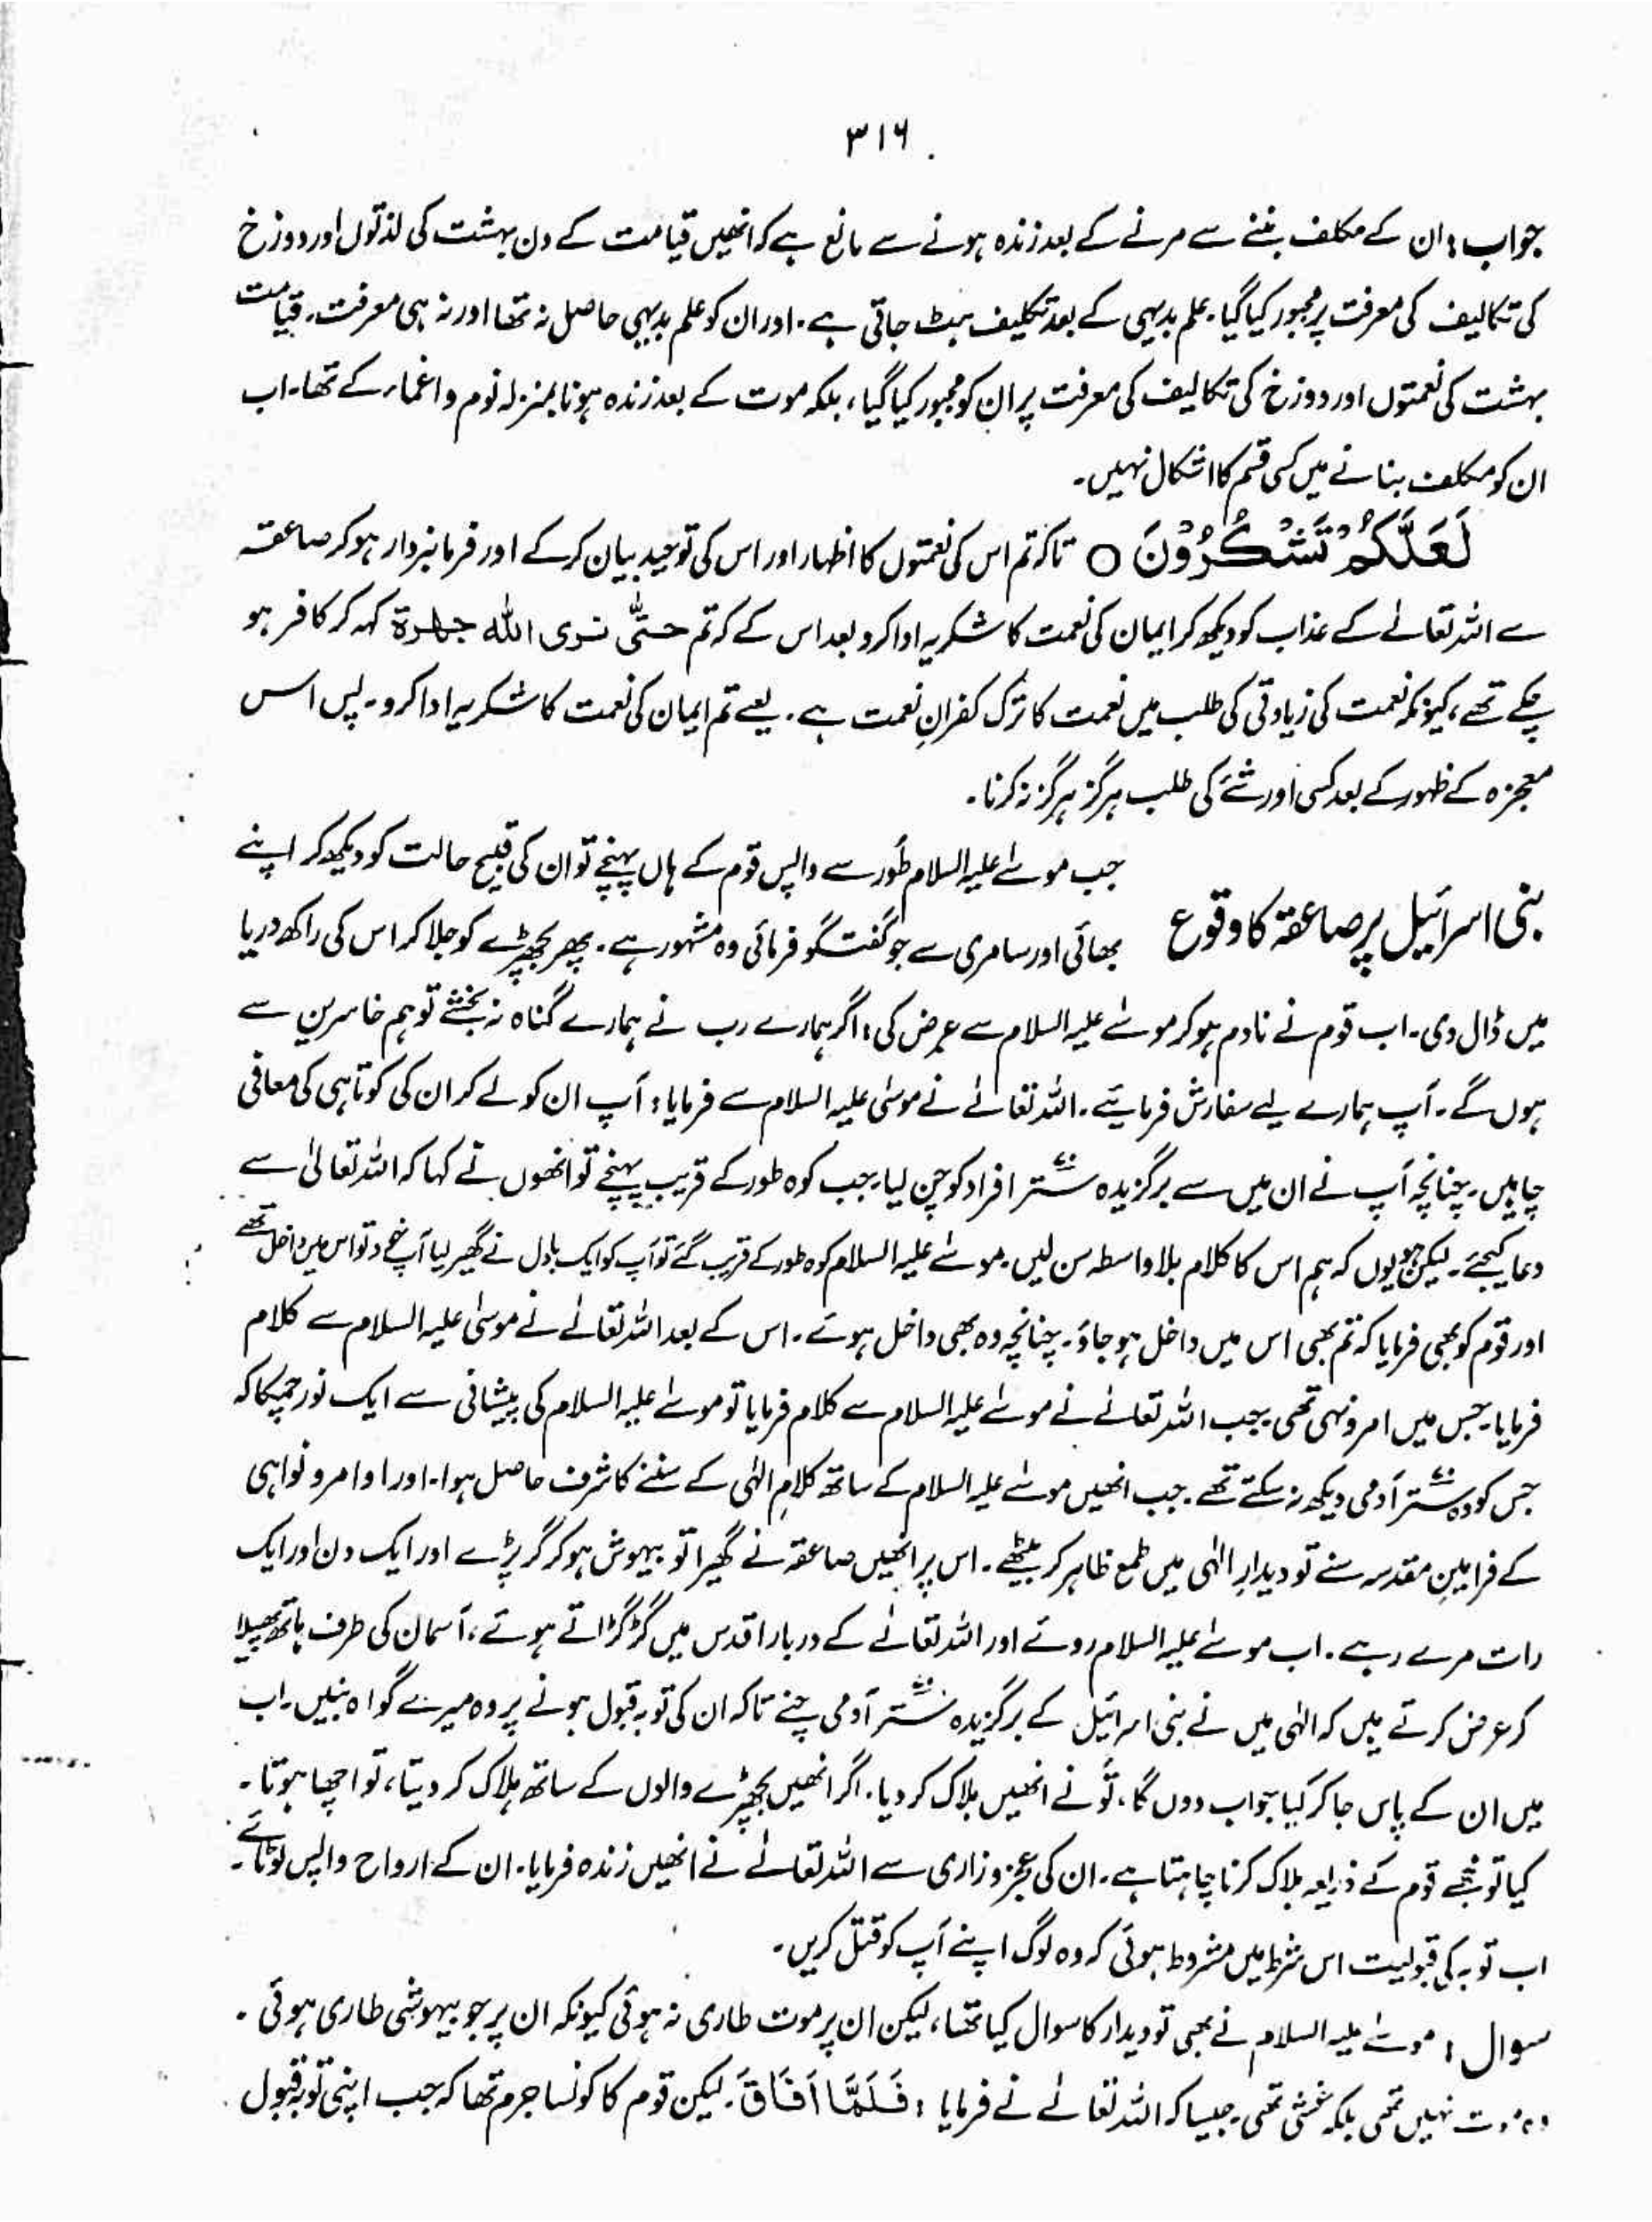 ۳۱۶
جواب : ان کے مکلف بننے سے مرنے کے بعد زندہ ہونے سے مانع ہے کہ انھیں قیامت کے دن بہشت کی لذتوں اور دوزخ
کی تکالیف کی معرفت پر مجبور کیا گیا۔ علم بدیہی کے بعد تکلیف ہٹ جاتی ہے۔ اور ان کو علم بدیہی حاصل نہ تھا اور نہ ہی معرفت۔ قیامت
بہشت کی نعمتوں اور دوزخ کی تکالیف کی معرفت پر ان کو مجبور کیا گیا، بلکہ موت کے بعد زندہ ہونا بمنزلہ نوم و اغماء کے تھا۔ اب
ان کو مکلف بنانے میں کسی قسم کا اشکال نہیں۔
لَعَلَّكُمْ تَشْكُرُوْنَ ○ تاکہ تم اس کی نعمتوں کا اظہار اور اس کی توحید بیان کر کے اور فرمانبردار ہو کر صاعقہ
سے اللہ تعالےٰ کے عذاب کو دیکھ کر ایمان کی نعمت کا شکریہ ادا کرو بعد اس کے کہ تم حتّٰی نری اللّٰہ جہرۃ کہہ کر کافر ہو
چکے تھے، کیونکہ نعمت کی زیادتی کی طلب میں نعمت کا ترک کفرانِ نعمت ہے۔ یعنے تم ایمان کی نعمت کا شکریہ ادا کرو۔ پس اس
معجزہ کے ظہور کے بعد کسی اور شئے کی طلب ہرگز ہرگز نہ کرنا۔
جب موسےٰ علیہ السلام طُور سے واپس قوم کے ہاں پہنچے تو ان کی قبیح حالت کو دیکھ کر اپنے
بنی اسرائیل پر صاعقہ کا وقوع بھائی اور سامری سے جو گفتگو فرمائی وہ مشہور ہے۔ پھر بچھڑے کو جلا کر اس کی راکھ دریا
میں ڈال دی۔ اب قوم نے نادم ہو کر موسےٰ علیہ السلام سے عرض کی : اگر ہمارے رب نے ہمارے گناہ نہ بخشے تو ہم خاسرین سے
ہوں گے۔ آپ ہمارے لیے سفارش فرمائیے۔ اللہ تعالےٰ نے موسیٰ علیہ السلام سے فرمایا : آپ ان کو لے کر ان کی کوتاہی کی معافی
چاہیں۔ چنانچہ آپ نے ان میں سے برگزیدہ ستر افراد کو چن لیا۔ جب کوہ طور کے قریب پہنچے تو انھوں نے کہا کہ اللہ تعالیٰ سے
دعا کیجئے۔ لیکن ہو یوں کہ ہم اس کا کلام بلا واسطہ سن لیں۔ موسےٰ علیہ السلام کوہ طور کے قریب گئے تو آپ کو ایک بادل نے گھیر لیا آپ خود تو اس میں داخل تھے
اور قوم کو بھی فرمایا کہ تم بھی اس میں داخل ہو جاؤ۔ چنانچہ وہ بھی داخل ہوئے۔ اس کے بعد اللہ تعالےٰ نے موسیٰ علیہ السلام سے کلام
فرمایا۔ جس میں امر و نہی تھی۔ جب اللہ تعالےٰ نے موسےٰ علیہ السلام سے کلام فرمایا تو موسےٰ علیہ السلام کی پیشانی سے ایک نور چمکا کہ
جس کو وہ ستر آدمی دیکھ نہ سکتے تھے۔ جب انھیں موسےٰ علیہ السلام کے ساتھ کلامِ الٰہی کے سننے کا شرف حاصل ہوا۔ اور اوامر و نواہی
کے فرامینِ مقدسہ سنے تو دیدارِ الٰہی میں طمع ظاہر کر بیٹھے۔ اس پر انھیں صاعقہ نے گھیرا تو بیہوش ہو کر گر پڑے اور ایک دن اور ایک
رات مرے رہے۔ اب موسےٰ علیہ السلام روئے اور اللہ تعالےٰ کے دربار اقدس میں گڑگڑاتے ہوئے، آسمان کی طرف ہاتھ پھیلا
کر عرض کرتے ہیں کہ الٰہی میں نے بنی اسرائیل کے برگزیدہ ستر آدمی چنے تاکہ ان کی توبہ قبول ہونے پر وہ میرے گواہ بنیں۔ اب
میں ان کے پاس جا کر کیا جواب دوں گا، تُو نے انھیں ہلاک کر دیا۔ اگر انھیں بچھڑے والوں کے ساتھ ہلاک کر دیتا، تو اچھا ہوتا۔
کیا تو مجھے قوم کے ذریعہ ہلاک کرنا چاہتا ہے۔ ان کی عجز و زاری سے اللہ تعالےٰ نے انھیں زندہ فرمایا۔ ان کے ارواح واپس لوٹائے۔
اب توبہ کی قبولیت اس شرط میں مشروط ہوئی کہ وہ لوگ اپنے آپ کو قتل کریں۔
سوال : موسےٰ علیہ السلام نے بھی تو دیدار کا سوال کیا تھا، لیکن ان پر موت طاری نہ ہوئی کیونکہ ان پر جو بیہوشی طاری ہوئی۔
وہ موت نہیں تھی بلکہ غشی تھی۔ جیسا کہ اللہ تعالےٰ نے فرمایا : فَلَمَّا اَفَاقَ۔ لیکن قوم کا کونسا جرم تھا کہ جب اپنی توبہ قبول